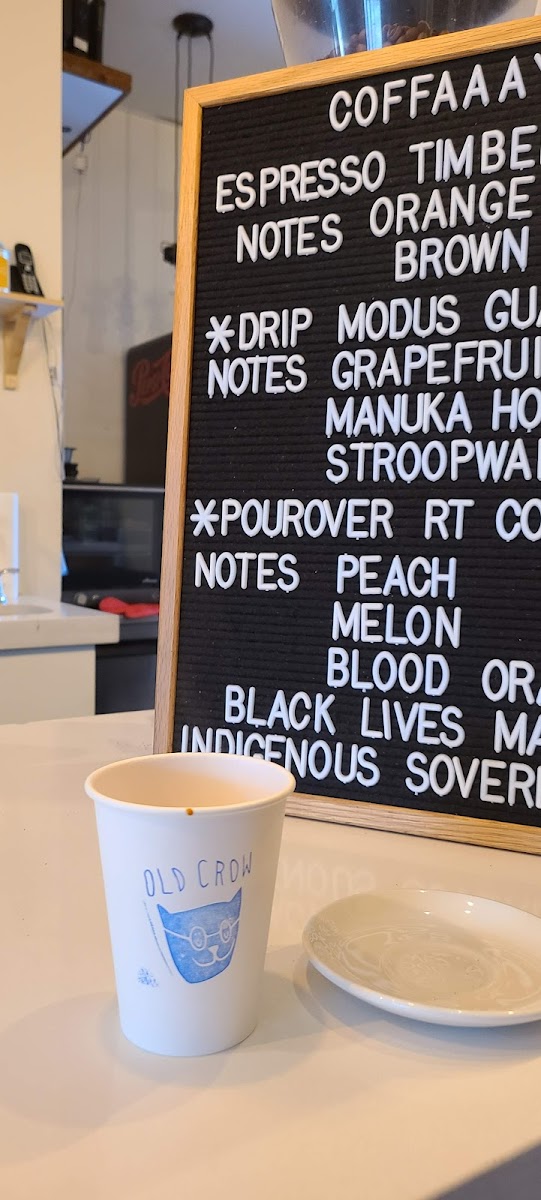 COFFAAAY
ESPRESSO TIMBE
NOTES ORANGE
BROWN
*DRIP MODUS GUA
NOTES GRAPEFRUI
MANUKA HO
STROOPWAF
*POUROVER RT CO
NOTES PEACH
MELON
BLOOD ORA
BLACK LIVES MA
INDIGENOUS SOVERE
OLD CROW